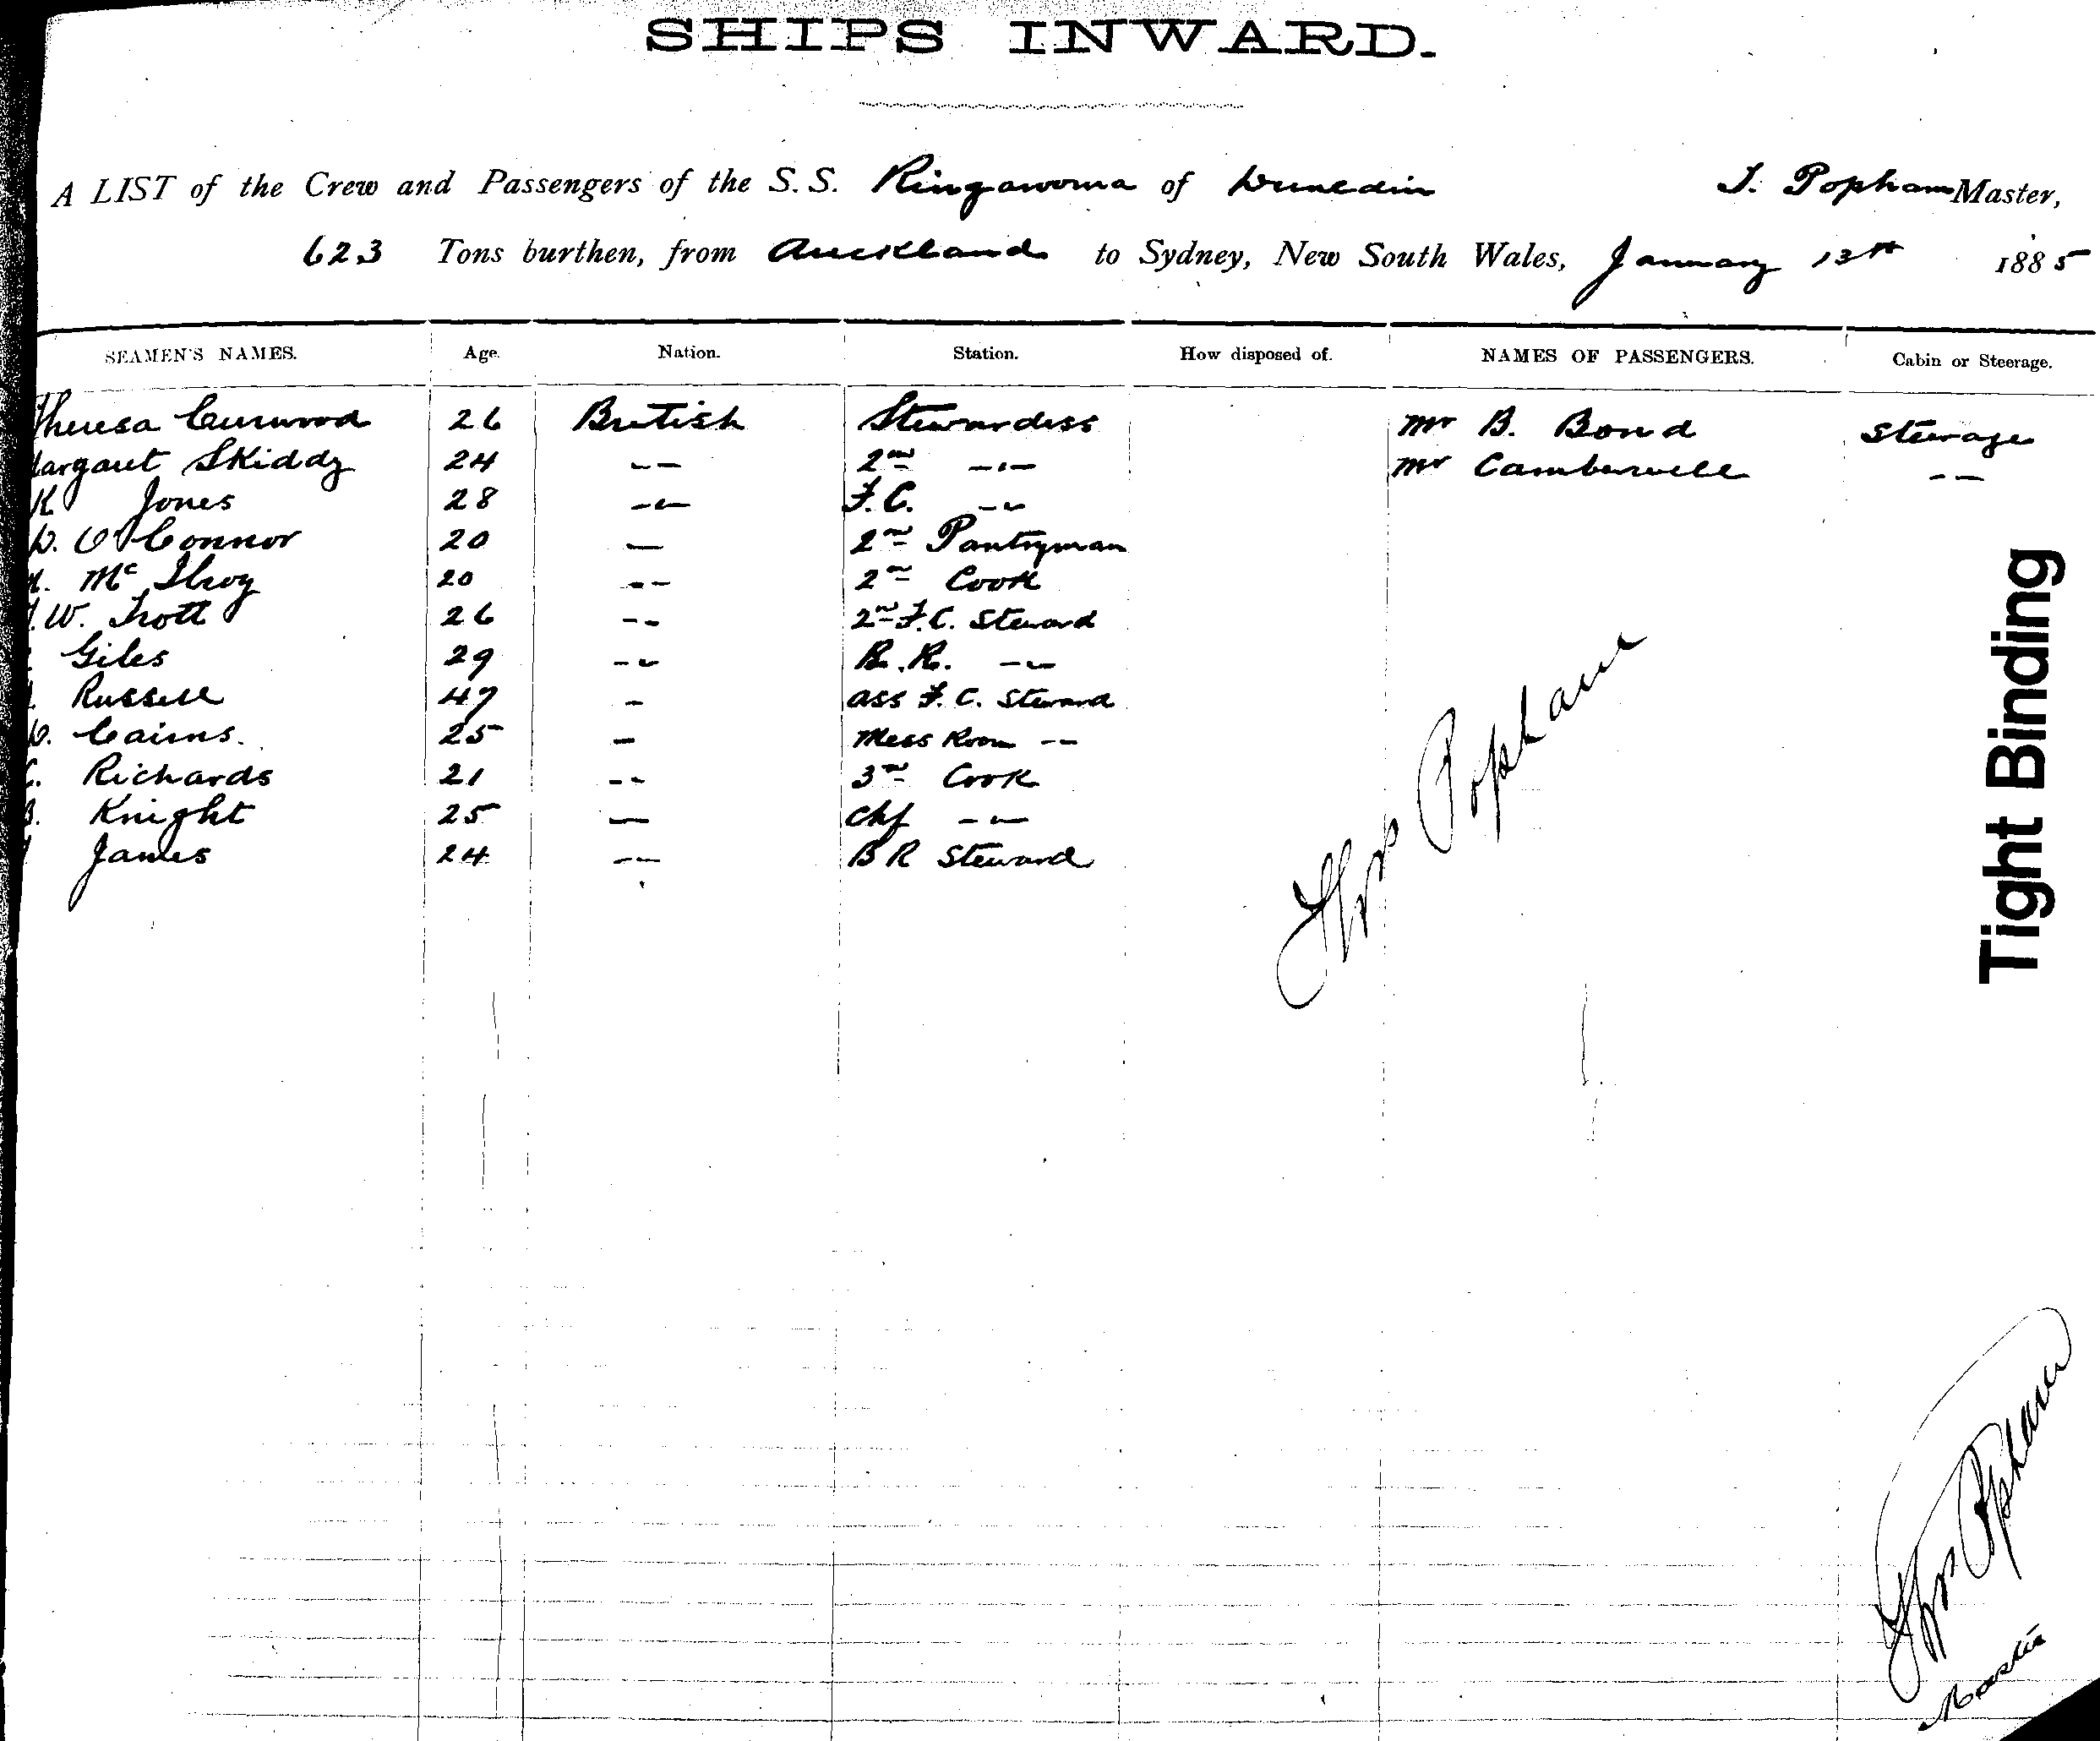 SHIPS INWARD.
A LIST of the Crew and Passengers of the S.S. Ringarooma of Dunedin J. Popham Master,
623 Tons burthen, from Auckland to Sydney, New South Wales, January 13th 1885
SEAMEN'S NAMES. Age. Nation. Station. How disposed of. NAMES OF PASSENGERS. Cabin or Steerage.
Theresa Curwood 26 British Stewardess Mr B. Bond Steerage
Margaret Skiddy 24 -- 2nd -- Mr Camberwell --
K Jones 28 -- F.C. --
D. O'Connor 20 - 2nd Pantryman
Mc Ilroy 20 -- 2nd Cook
W. Trott 26 -- 2nd F.C. Steward
Giles 29 -- B.R. --
Russell 47 - ass F.C. Steward
Cairns. 25 - Mess Room --
C. Richards 21 -- 3rd Cook
B. Knight 25 - Chf --
James 24 -- B R Steward
Thos Popham
Tight Binding
Thos Popham
Master